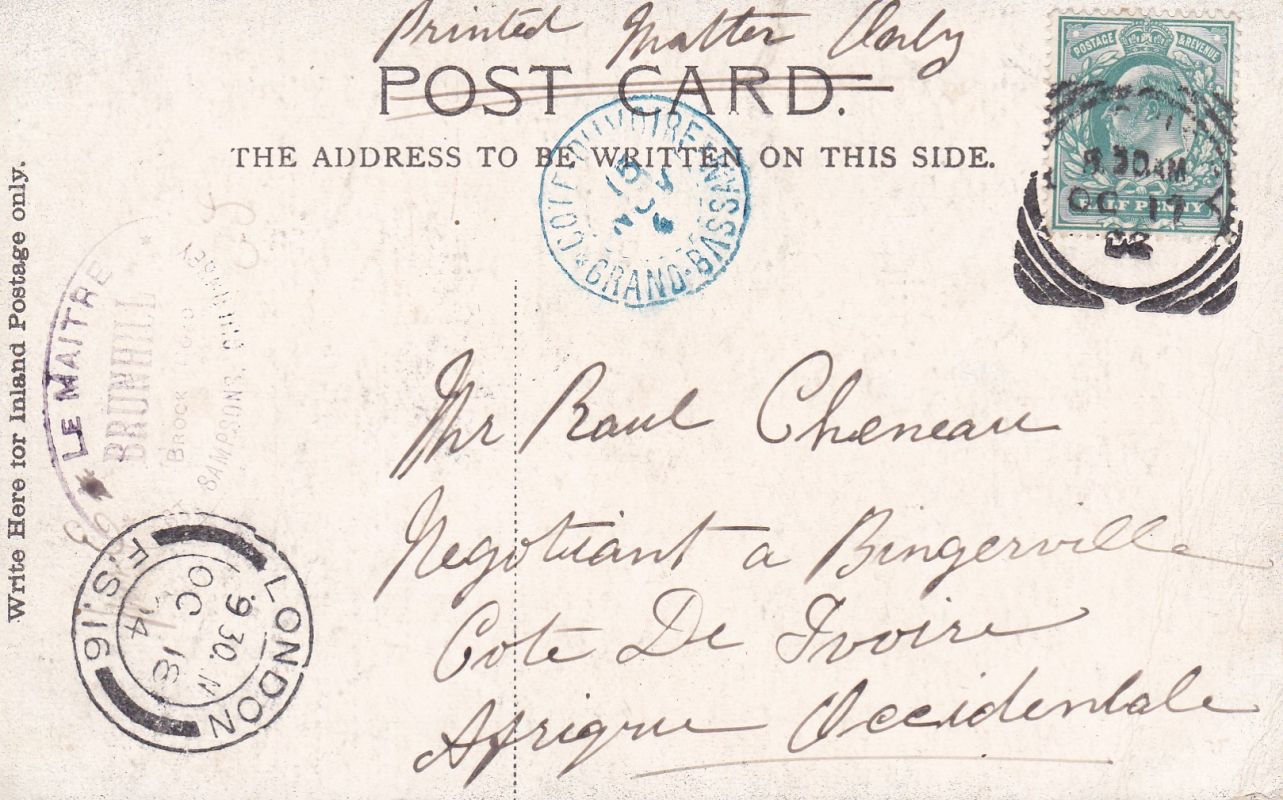 Printed Matter Only
POST CARD.
THE ADDRESS TO BE WRITTEN ON THIS SIDE.
POSTAGE & REVENUE
HALF PENNY
30AM
OC 17
COTE D'IVOIRE
GRAND-BASSAM
15
Write Here for Inland Postage only.
LE MAITRE
BRUNHILL
BROCK ROAD
SAMPSONS,
LONDON
F.S.16
9 30. N
OC 18
04
Mr Raul Cheneau
Negotiant a Bingerville
Cote De Ivoire
Afrique Occidentale